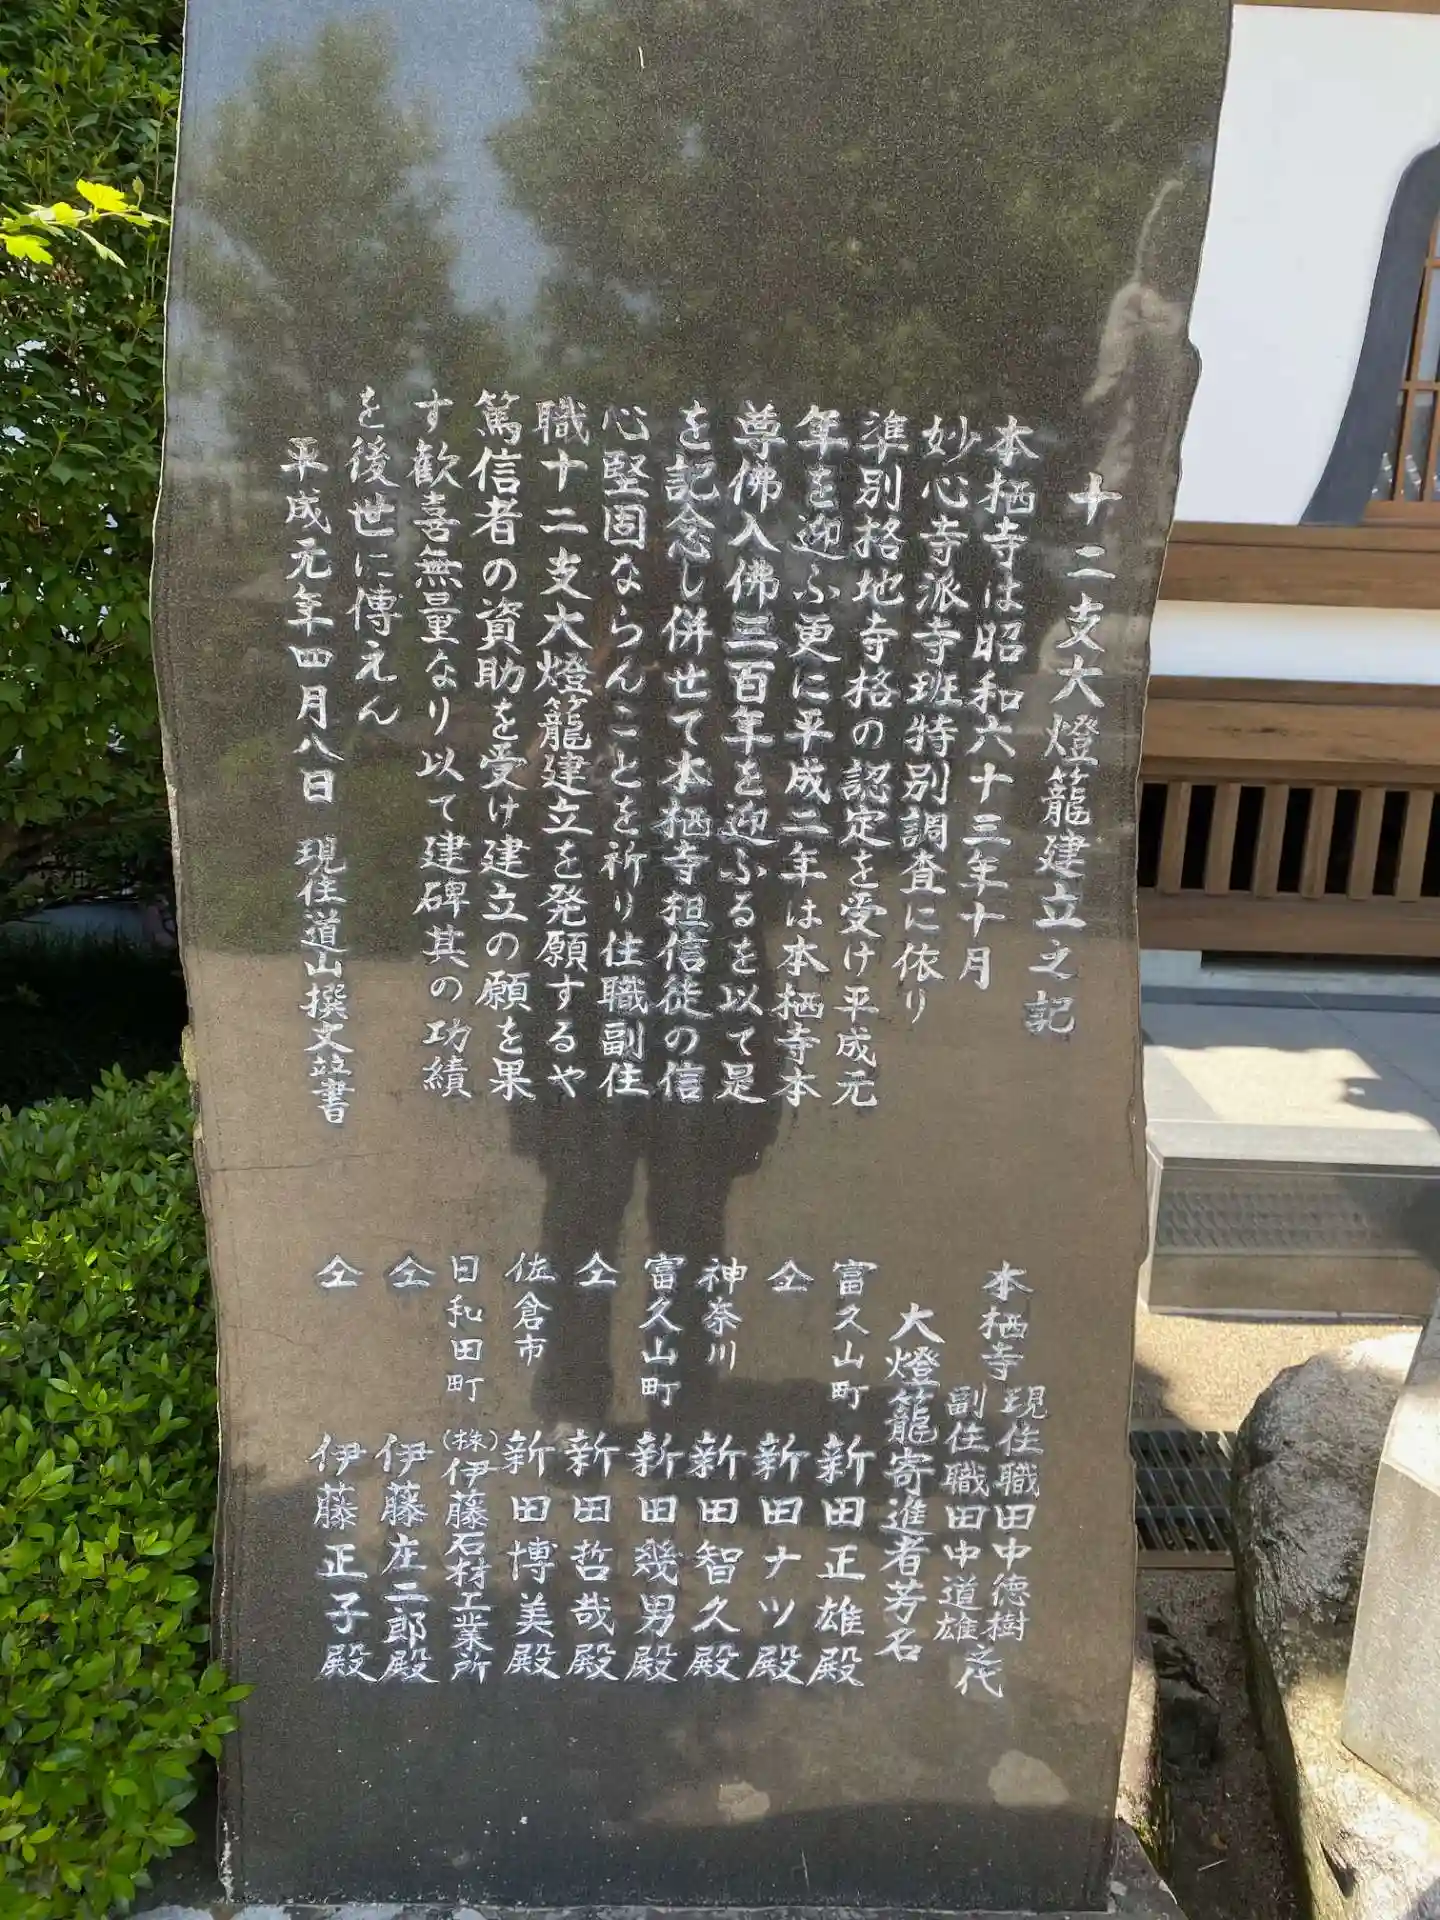 十二支大燈籠建立之記
本栖寺は昭和六十三年十月
妙心寺派寺班特別調査に依り
準別格地寺格の認定を受け平成元
年を迎ふ更に平成二年は本栖寺本
尊佛入佛三百年を迎ふるを以て是
を記念し併せて本栖寺担信徒の信
心堅固ならんことを祈り住職副住
職十二支大燈籠建立を発願するや
篤信者の資助を受け建立の願を果
す歓喜無量なり以て建碑其の功績
を後世に傳えん
平成元年四月八日 現住道山撰文竝書
本栖寺 現住職田中徳樹
副住職田中道雄 之代
大燈籠寄進者芳名
富久山町 新田正雄殿
仝 新田ナツ殿
神奈川 新田智久殿
富久山町 新田幾男殿
仝 新田哲哉殿
佐倉市 新田博美殿
日和田町 (株)伊藤石材工業所
仝 伊藤庄二郎殿
仝 伊藤正子殿